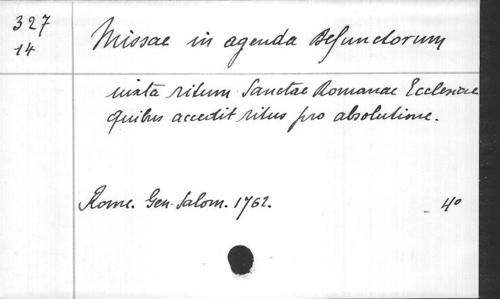 327
14
Missae in agenda Defunctorum
iuxta ritum Sanctae Romanae Ecclesiae
quibus accedit ritus pro absolutione.
Rome. Gen. Salom. 1762. 4°